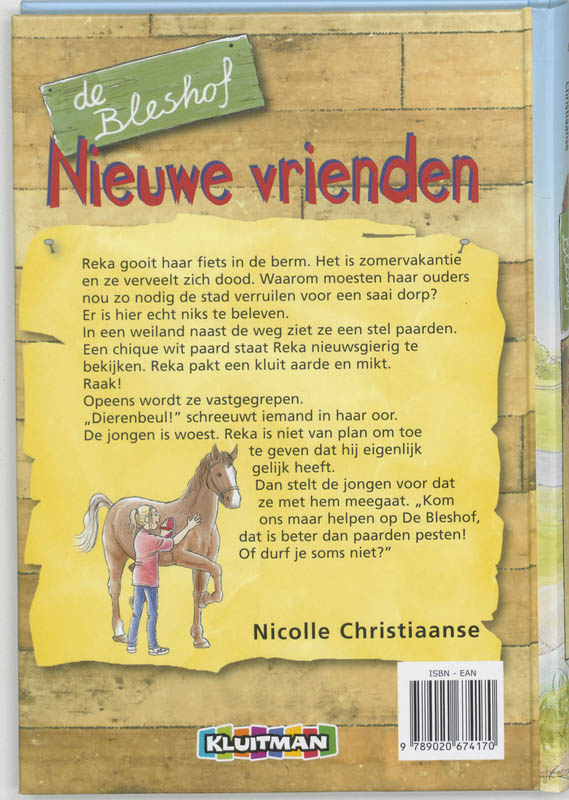 de
Bleshof
Nieuwe vrienden
Reka gooit haar fiets in de berm. Het is zomervakantie
en ze verveelt zich dood. Waarom moesten haar ouders
nou zo nodig de stad verruilen voor een saai dorp?
Er is hier echt niks te beleven.
In een weiland naast de weg ziet ze een stel paarden.
Een chique wit paard staat Reka nieuwsgierig te
bekijken. Reka pakt een kluit aarde en mikt.
Raak!
Opeens wordt ze vastgegrepen.
„Dierenbeul!” schreeuwt iemand in haar oor.
De jongen is woest. Reka is niet van plan om toe
te geven dat hij eigenlijk
gelijk heeft.
Dan stelt de jongen voor dat
ze met hem meegaat. „Kom
ons maar helpen op De Bleshof,
dat is beter dan paarden pesten!
Of durf je soms niet?”
Nicolle Christiaanse
ISBN - EAN
9 789020 674170
KLUITMAN
Christiaanse